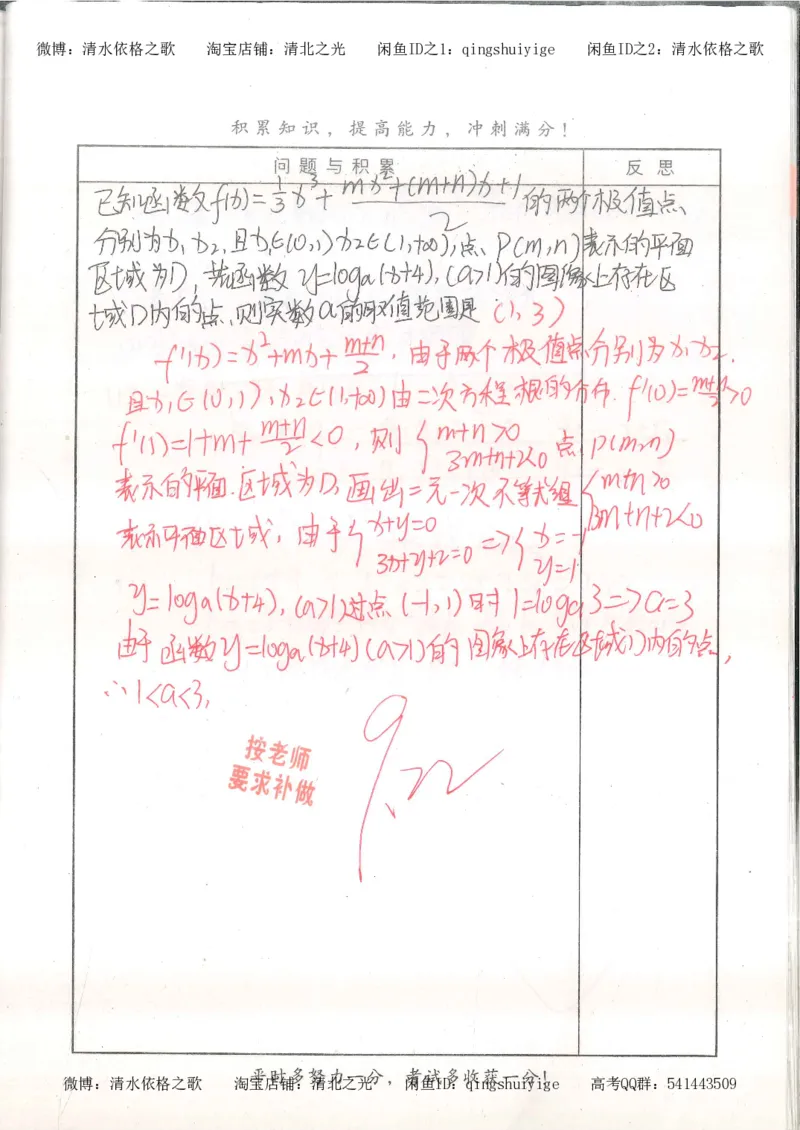 微博：清水依格之歌 淘宝店铺：清北之光 闲鱼ID之1：qingshuiyige 闲鱼ID之2：清水依格之歌
积累知识，提高能力，冲刺满分！
问题与积累 反思
已知函数f(x)=1/3x³+(mx²+(m+n)x+1)/2的两个极值点
分别为x₁x₂,且x₁∈(0,1)x₂∈(1,+∞),点P(m,n)表示的平面
区域为D,若函数y=loga(x+4),(a>1)的图像上存在区
域D内的点,则实数a的取值范围是(1,3)
f'(x)=x²+mx+(m+n)/2,由于两个极值点分别为x₁x₂.
且x₁∈(0,1),x₂∈(1,+∞)由二次方程根的分布.f'(0)=(m+n)/2>0
f'(1)=1+m+(m+n)/2<0,则{m+n>0 3m+n+2<0 点P(m,n)
表示的平面区域为D,画出二元一次不等式组{m+n>0 3m+n+2<0
表示平面区域,由于{x+y=0 3x+y+2=0=>{x=-1 y=1
y=loga(x+4),(a>1)过点(-1,1)时1=loga3=>a=3
由于函数y=loga(x+4)(a>1)的图象上存在区域D内的点,
∴1<a<3,
按老师
要求补做
9.22
平时多努力一分，考试多收获一分！
微博：清水依格之歌 淘宝店铺：清北之光 闲鱼ID：qingshuiyige 高考QQ群：541443509